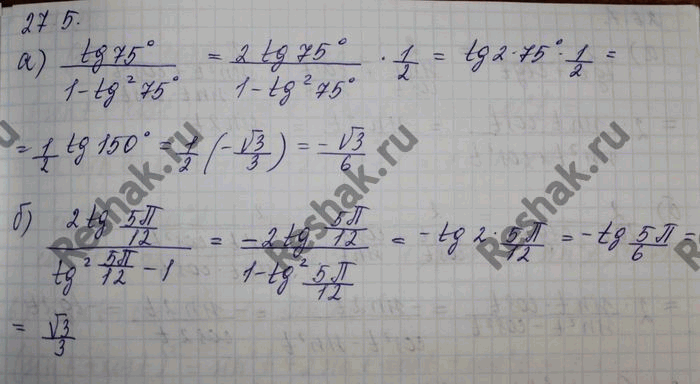 27 5.
а) tg75° / (1-tg²75°) = 2 tg 75° / (1-tg²75°) · 1/2 = tg2·75°·1/2 =
= 1/2 tg 150° = 1/2 (-√3/3) = -√3/6
б) 2tg 5π/12 / (tg² 5π/12 - 1) = -2tg 5π/12 / (1-tg² 5π/12) = -tg 2·5π/12 = -tg 5π/6 =
= √3/3
Reshak.ru
Reshak.ru
Reshak.ru